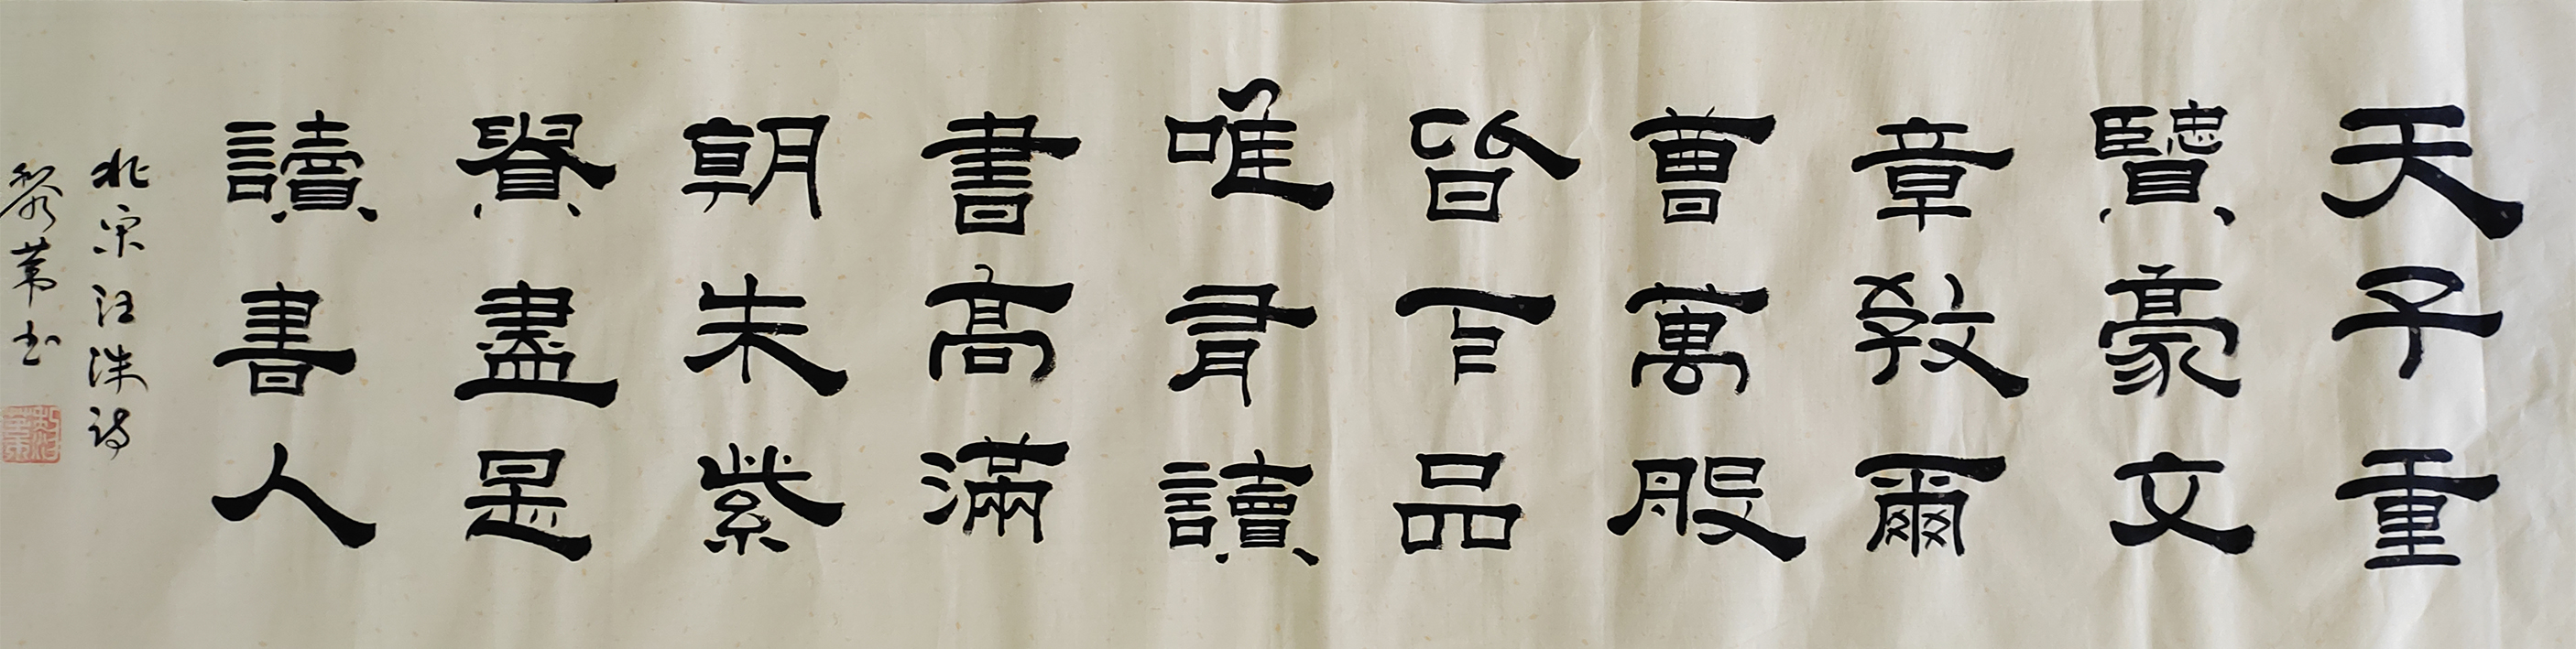 天子重
賢豪文
章教爾
曹萬般
皆下品
唯有讀
書高滿
朝朱紫
貴盡是
讀書人
北宋汪洙詩
黎葦书